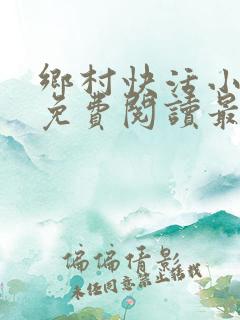 鄉村快活小
免費閱讀最
偏偏倩影
未经同意禁止转载